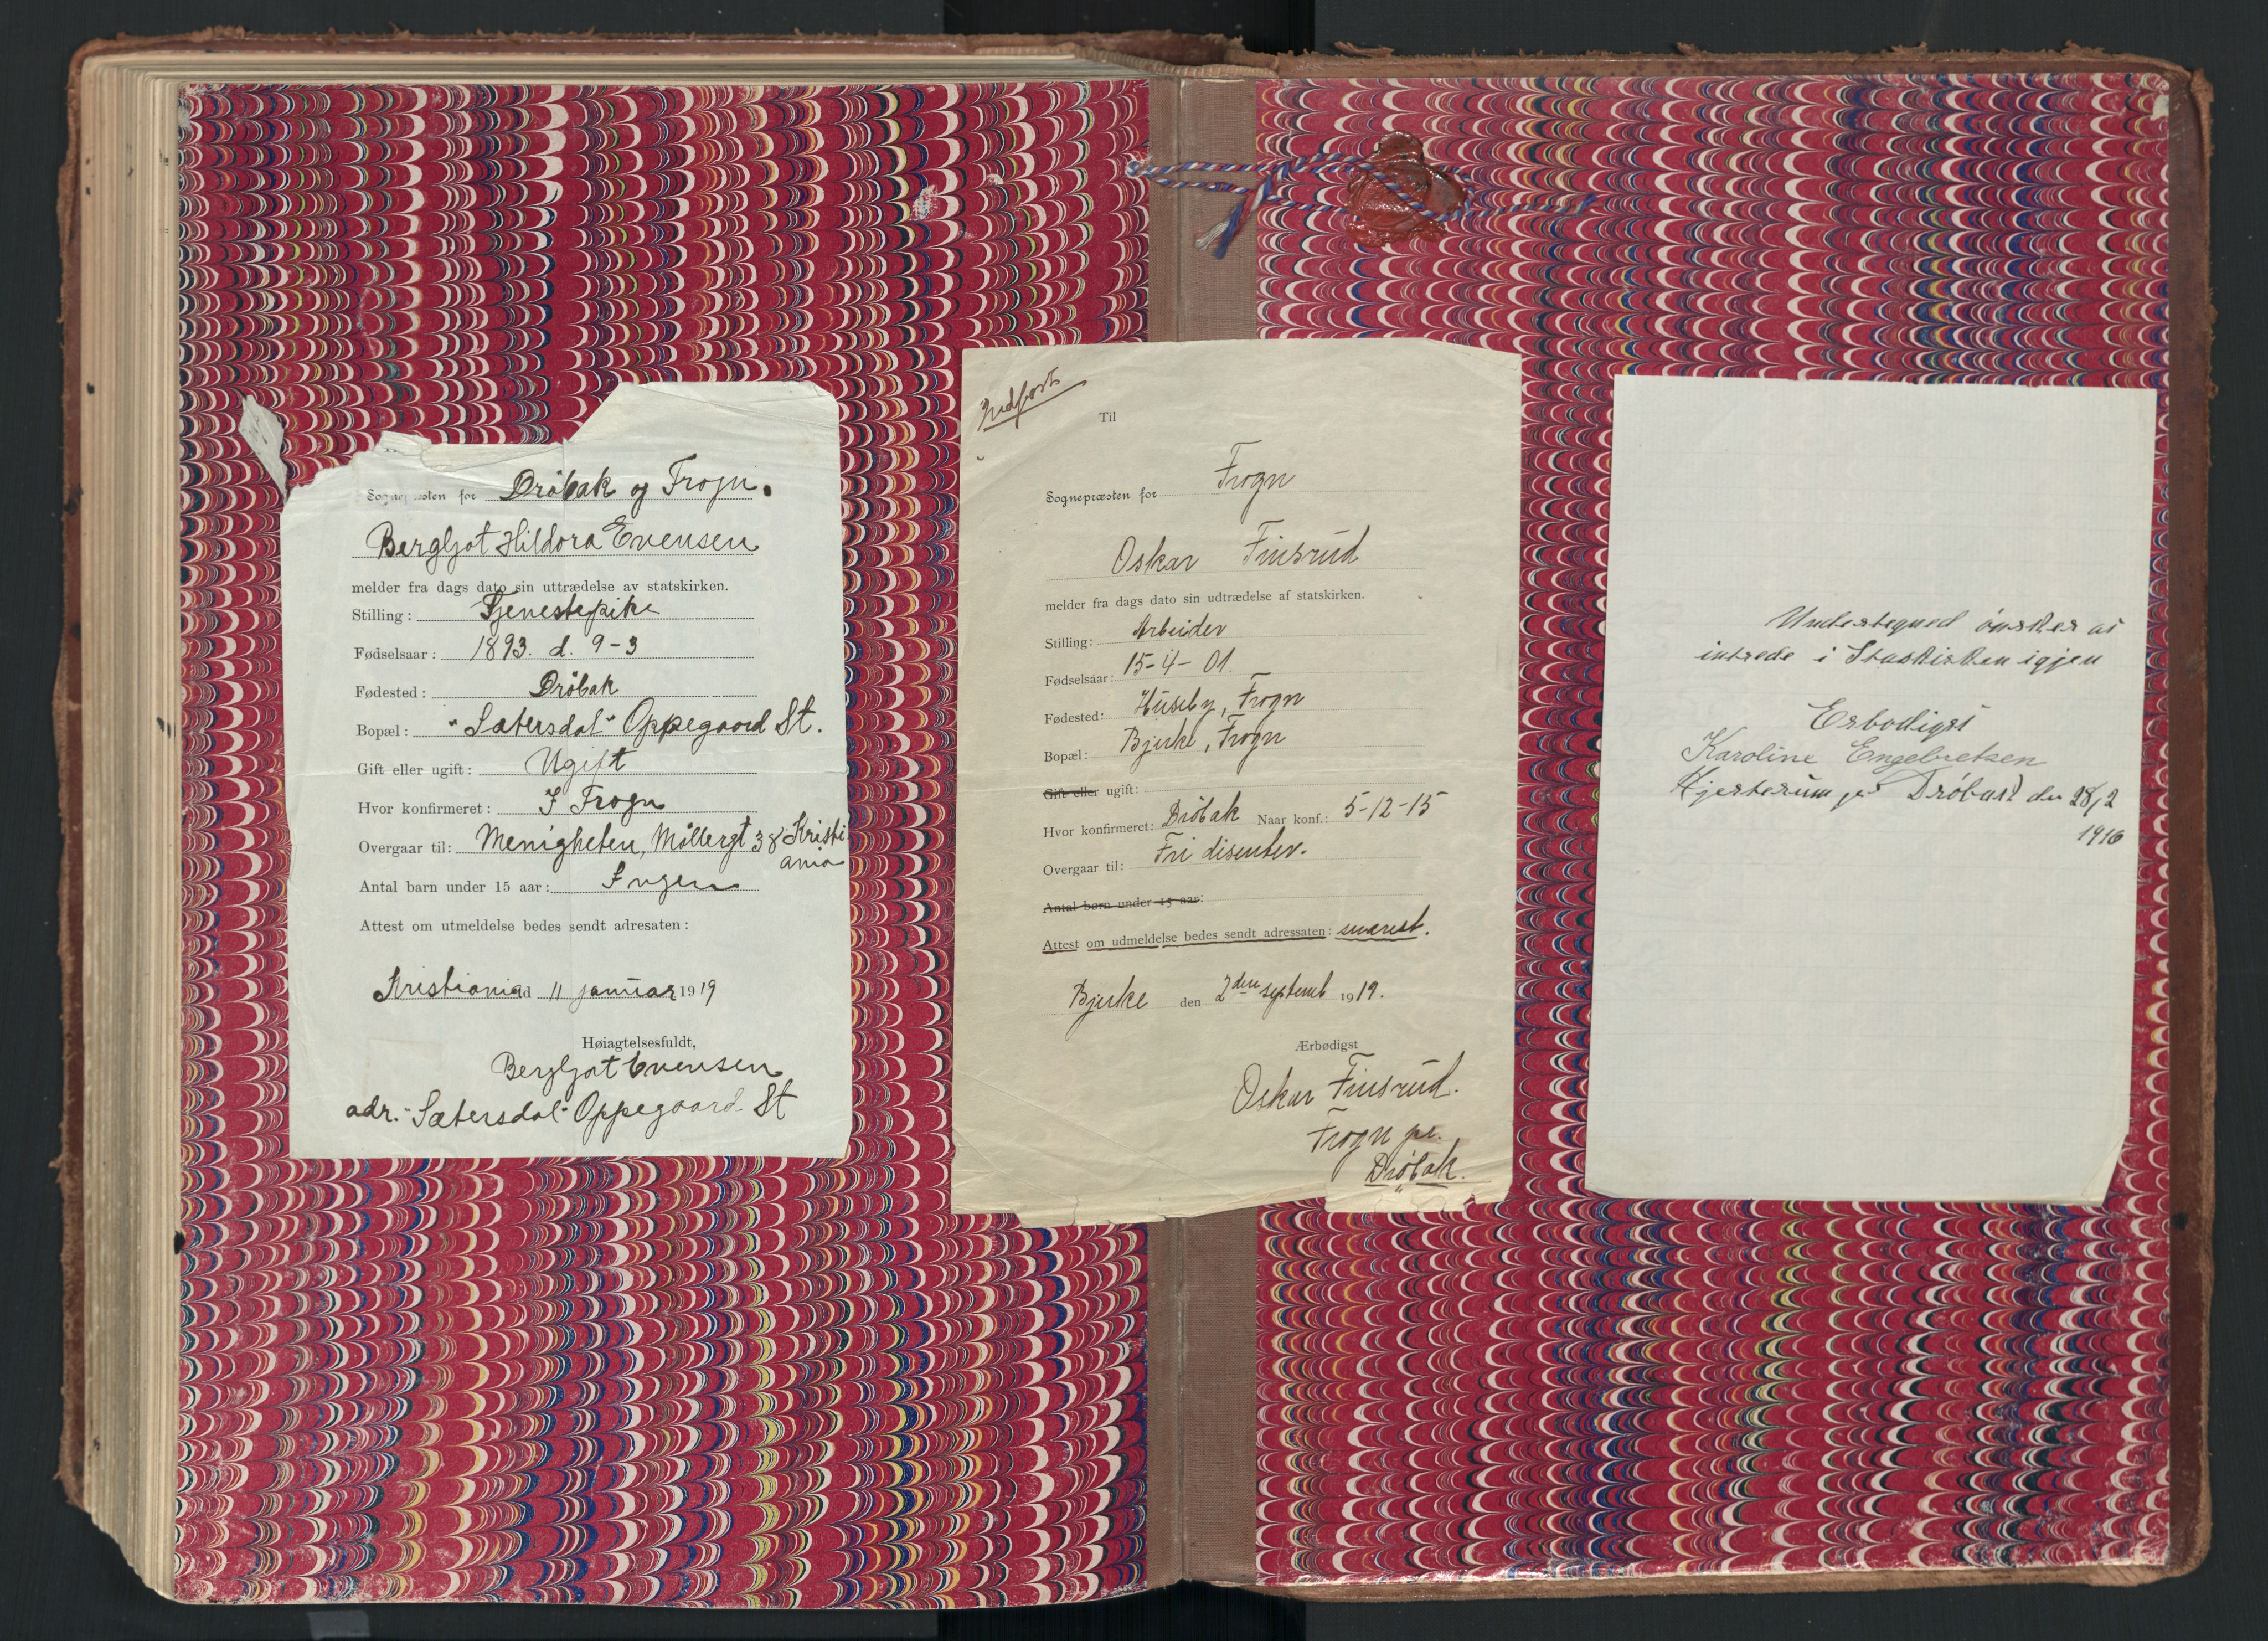 Sognepresten for Drøbak og Frogn.
Bergljot Hildora Evensen
melder fra dags dato sin uttrædelse av statskirken.
Stilling: Tjenestepike
Fødselsaar: 1893. d. 9-3
Fødested: Drøbak
Bopæl: "Sætersdal" Oppegaard St.
Gift eller ugift: Ugift
Hvor konfirmeret: I Frogn
Overgaar til: Menigheten, Møllergt 38 Kristi
ania
Antal barn under 15 aar: Ingen
Attest om utmeldelse bedes sendt adresaten:
Kristiania d 11 januar 1919
Høiagtelsesfuldt,
Bergljot Evensen
adr. "Sætersdal" Oppegaard St
Indført
Til
Sognepræsten for Frogn
Oskar Finsrud
melder fra dags dato sin udtrædelse af statskirken.
Stilling: Arbeider
Fødselsaar: 15-4-01.
Fødested: Huseby, Frogn
Bopæl: Bjerke, Frogn
Gift eller ugift:
Hvor konfirmeret: Drøbak Naar konf.: 5-12-15
Overgaar til: Fri disenter.
Antal børn under 15 aar:
Attest om udmeldelse bedes sendt adressaten: snarest.
Bjerke den 2den septemb 1919.
Ærbødigst
Oskar Finsrud.
Frogn pr.
Drøbak.
Undertegned ønsker at
intrede i Staskirken igjen
Erbødigst
Karoline Engebretsen
Hjerterum pr Drøbak den 28/2
1916